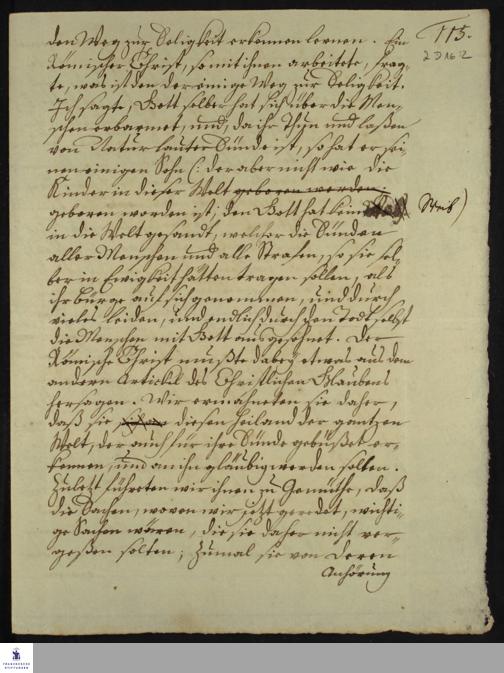 115.
2 D 16 2
den Weg zur Seligkeit erkennen lernen. Ein
Römischer Christ, so mit ihnen arbeitete, frag-
te, was ist den der einige Weg zur Seligkeit.
Ich sagte, Gott selber hat sich über die Men-
schen erbarmet, und, da ihr Thun und laßen
von Natur lauter Sünde ist, so hat er sei-
nen einigen Sohn (: der aber nicht wie die
Kinder in dieser Welt geboren werden,
geboren worden ist; den Gott hat kein Weib)
in die Welt gesandt, welcher die Sünden
aller Menschen und alle Strafen, so sie sel-
ber in Ewigkeit hätten tragen sollen, als
ihr Bürge auf sich genommen, und durch
vieles Leiden, und endlich durch den Todt selbst
die Menschen mit Gott ausgesöhnet. Der
Römische Christ mußte dabey etwas aus dem
andern Artickel des Christlichen Glaubens
hersagen. Wir ermahneten sie daher,
daß sie diesen Heiland der gantzen
Welt, der auch für ihre Sünde gebüßet er-
kennen, und an ihn gläubig werden solten.
Zuletzt führeten wir ihnen zu Gemüthe, daß
die Sachen, wovon wir jetzt geredet, wichti-
ge Sachen wären, die sie daher nicht ver-
geßen solten; zumal sie von deren
Anhörung
FRANCKESCHE
STIFTUNGEN